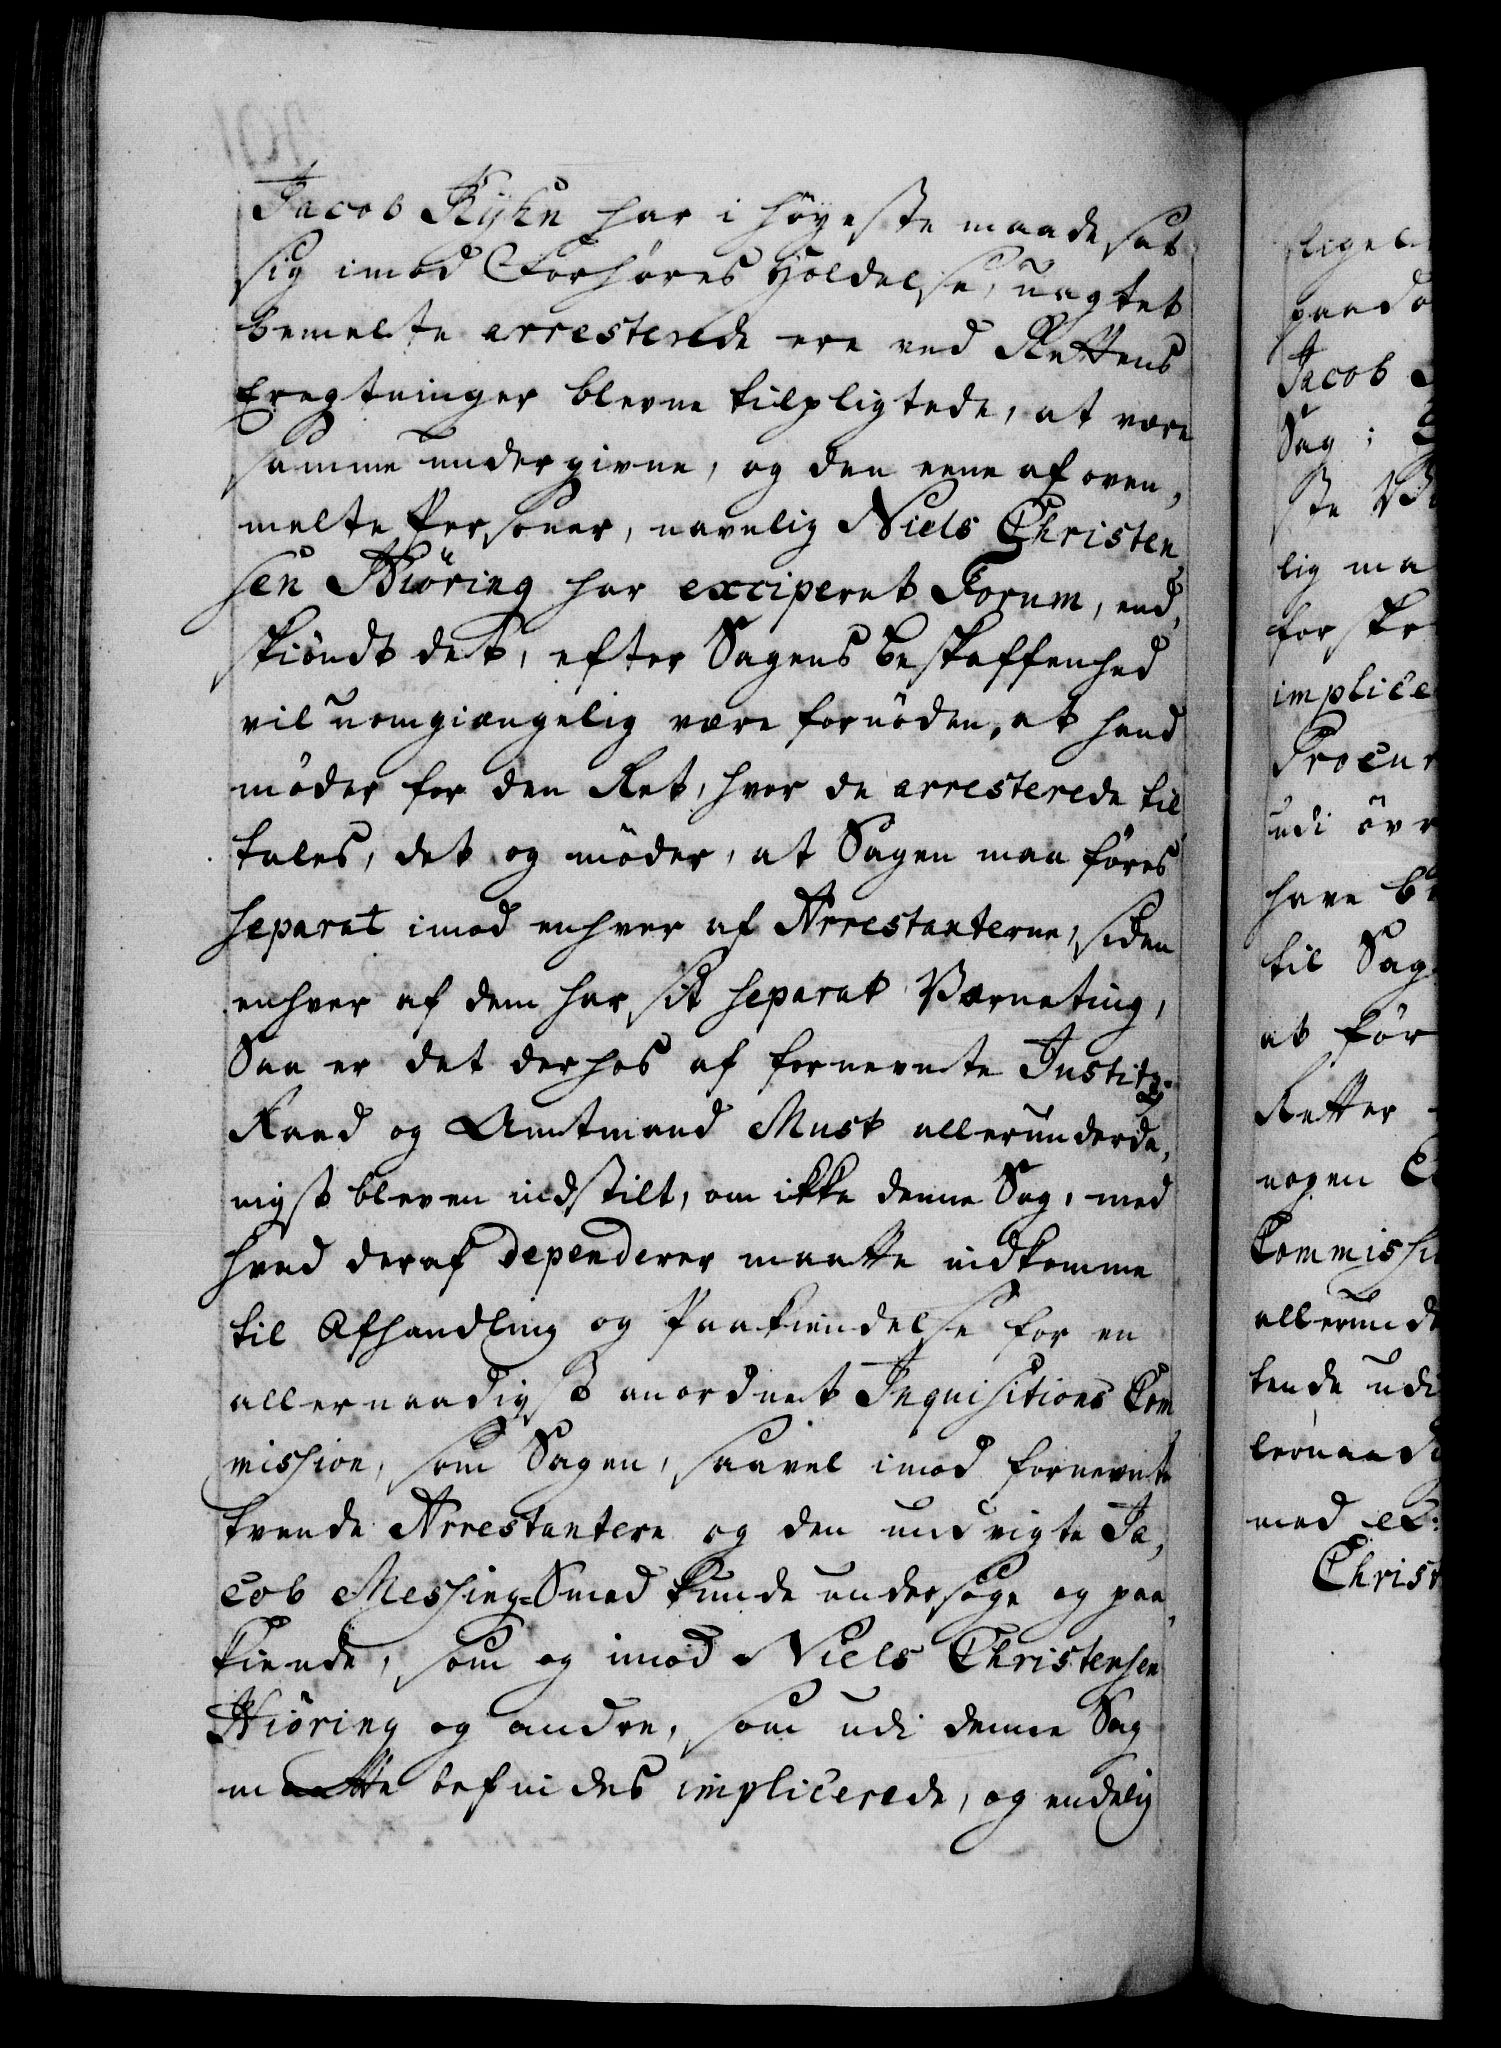 Jacob Kyhn har i høyeste maade sat
sig imod Forhørets Holdelse, uagtet
bemelte arresterede ere ved Rettens
Eragtninger blevne tilpligtede, at være
samme undergivne, og den eene af oven,
melte Personer, navnlig Niels Christen,
sen Hiöring har exciperet Forum, end,
skiöndt det, efter Sagens beskaffenhed
vil uomgiængelig være fornöden, at hand
möder for den Ret, hvor de arresterede til
tales, det og möder, at Sagen maa føres
separat imod enhver af Arrestanterne, siden
enhver af dem har sit separat Værneting,
Saa er det derhos af fornevnte Justitz-
Raad og Amtmand Musk allerunderda,
nigst bleven indstilt, om ikke denne Sag, med
hvad deraf dependerer maatte indkomme
til Afhandling og Paakiendelse for en
allernaadigst anordnet Inquisitions Com
mission, som Sagen, saavel imod fornevnte
tvende Arrestantere og den undvigte Ja,
cob Messing-Smed kunde undersøge og paa,
kiende, som og imod Niels Christensen
Hiöring og andre, som udi denne Sag
maatte befindes implicerede, og endelig
paad
Jacob
Sag;
ste
lig ma
for
implice
Procur
udi övr
have
til Sag
at för
Retter
nogen
Commissi
allerund
tende udi
med
Christ